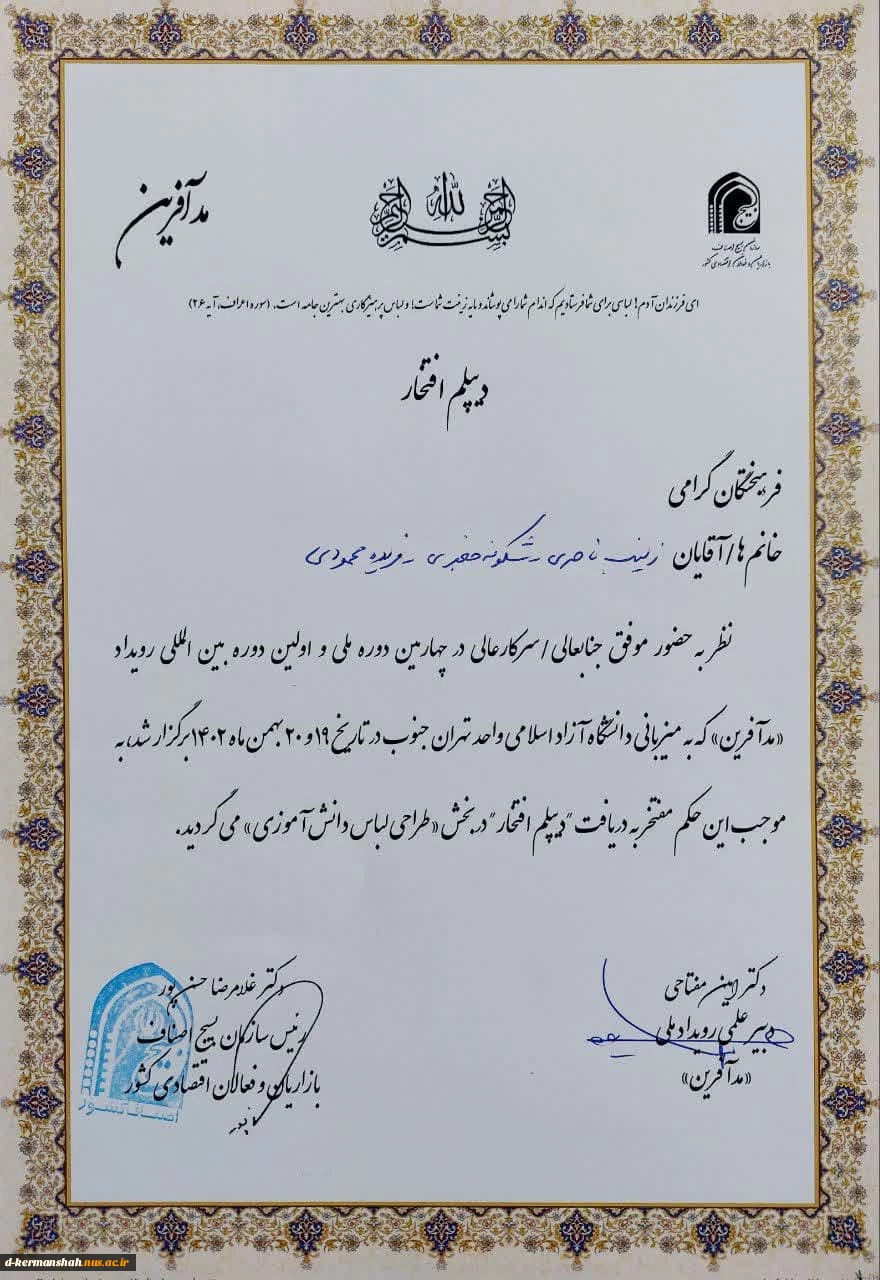 مدآفرین
بسم الله الرحمن الرحیم
بسیج
سازمان بسیج اصناف
بازاریان و فعالان اقتصادی کشور
ای فرزندان آدم! لباسی برای شما فرستادیم که اندام شما را می پوشاند و مایه زینت شماست؛ و لباس پرهیزگاری بهترین جامه است. (سوره اعراف، آیه ۲۶)
دیپلم افتخار
فرهیختگان گرامی
خانم ها/آقایان زینب ناصری - شکوفه صفری - فریده محمودی
نظر به حضور موفق جنابعالی/سرکارعالی در چهارمین دوره ملی و اولین دوره بین المللی رویداد
«مدآفرین» که به میزبانی دانشگاه آزاد اسلامی واحد تهران جنوب در تاریخ ۱۹ و ۲۰ بهمن ماه ۱۴۰۲ برگزار شد، به
موجب این حکم مفتخر به دریافت "دیپلم افتخار" در بخش «طراحی لباس دانش آموزی» می گردید.
دکتر امین مفتاحی
دبیر علمی رویداد ملی
«مدآفرین»
دکتر غلامرضا حسن پور
رئیس سازمان بسیج اصناف
بازاریان و فعالان اقتصادی کشور
بسیج
اصناف کشور
d-kermanshah.nus.ac.ir